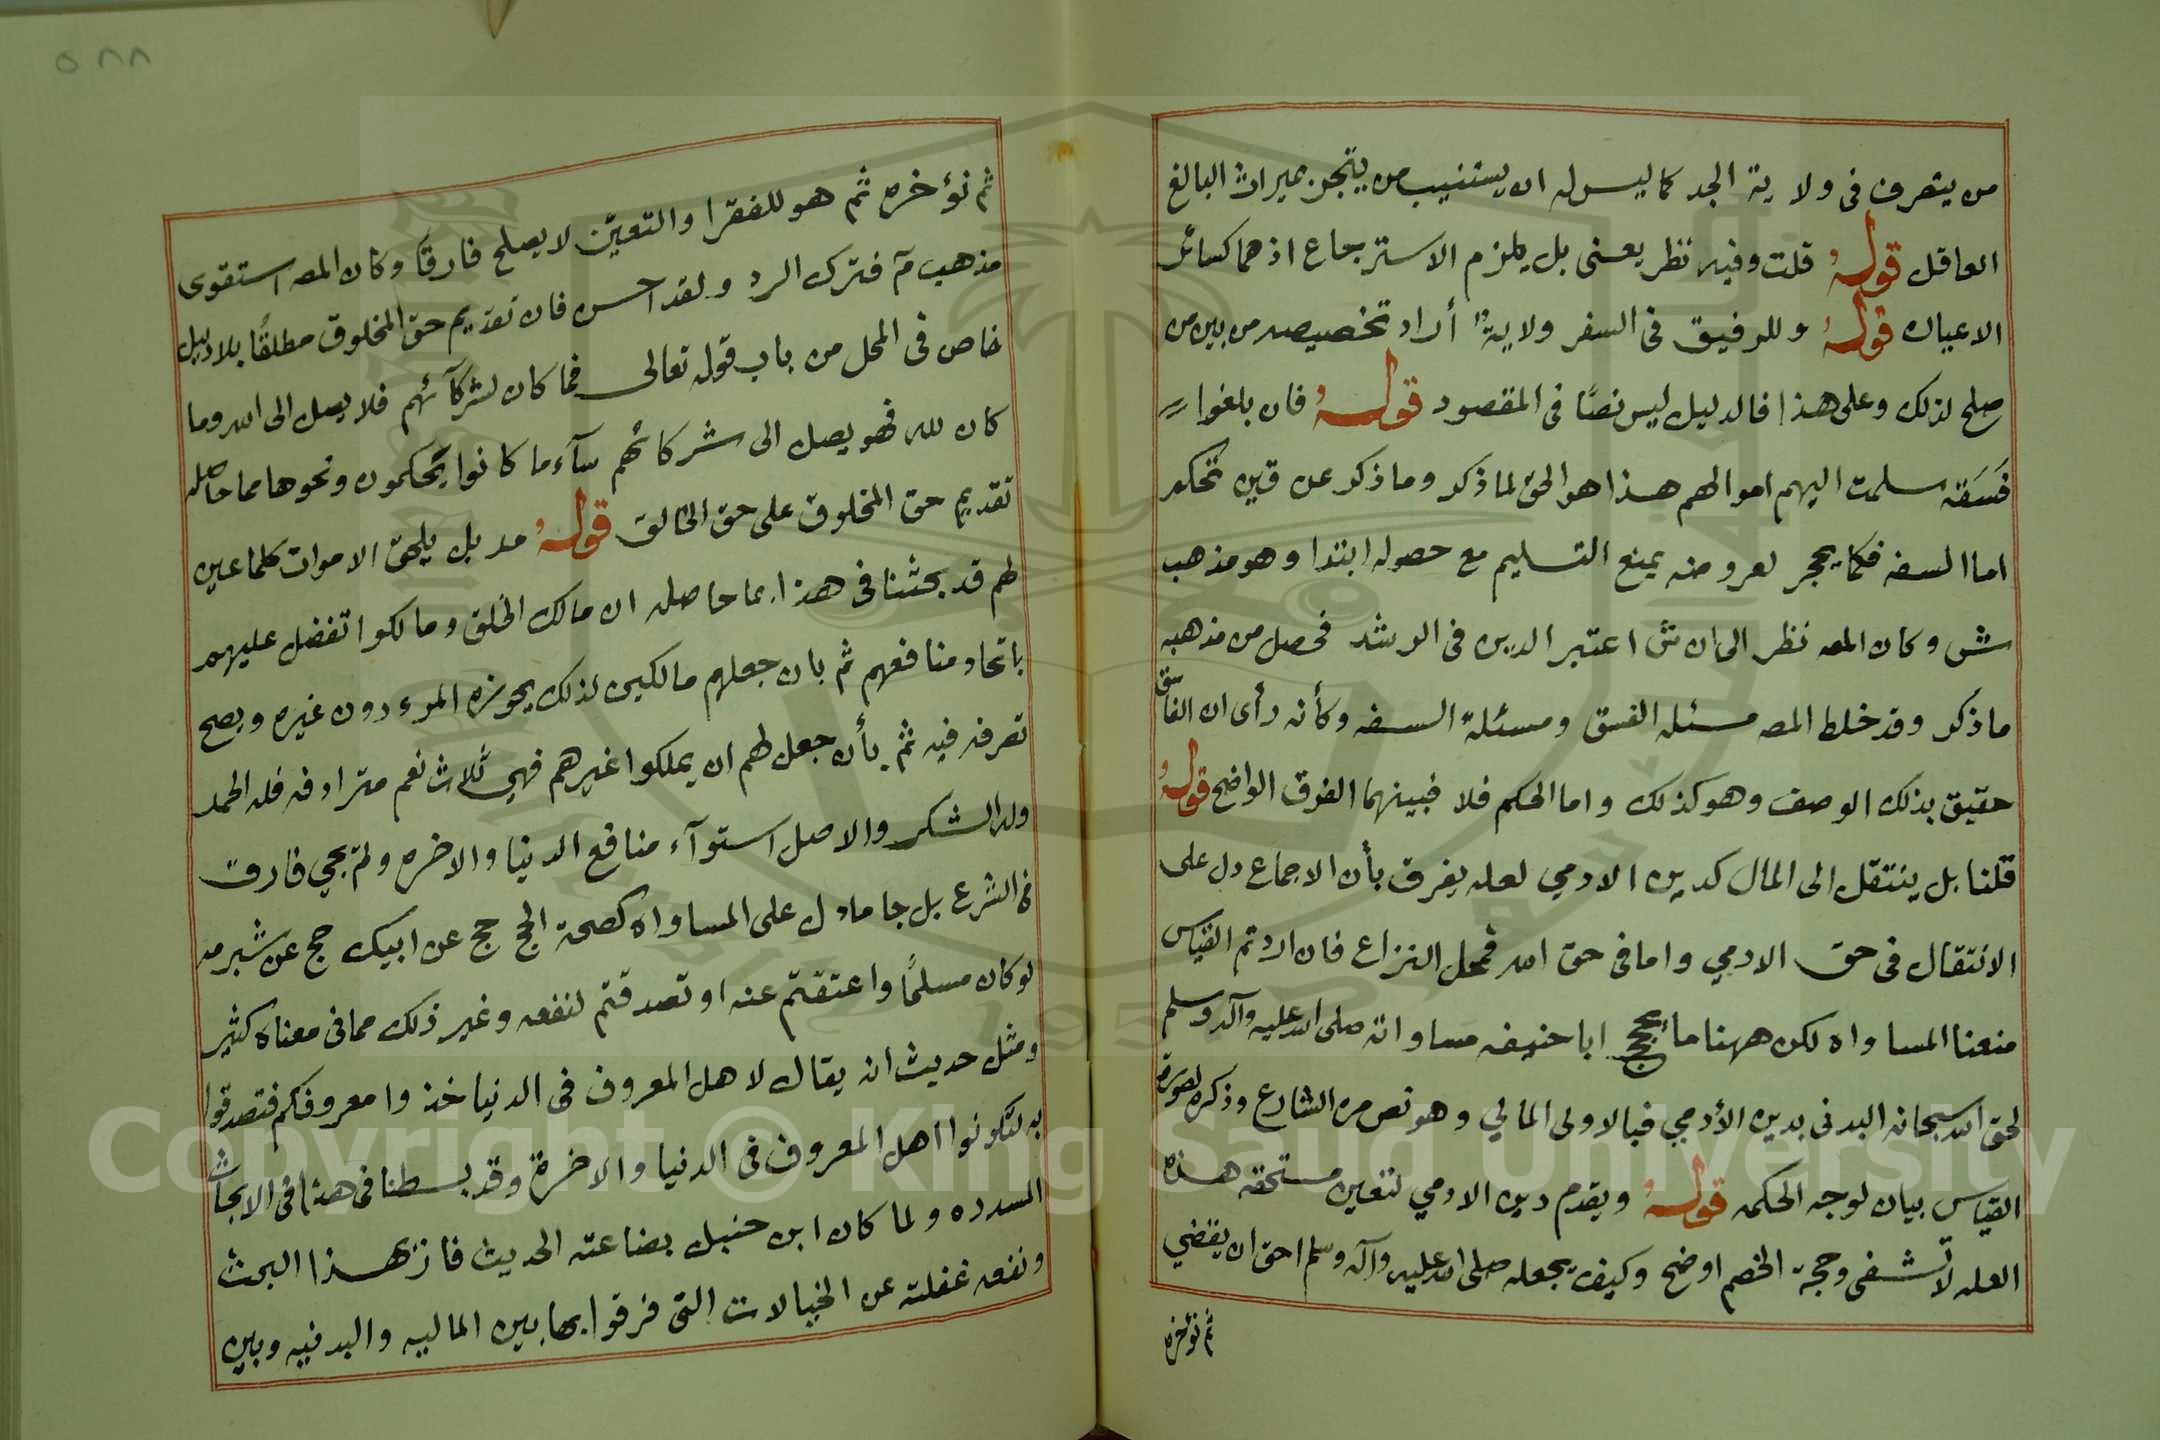 من يتصرف في ولاية الجد كما ليس له ان يستنيب من يتجر بميراث البالغ
العاقل قوله قلت وفيه نظر يعني بل يلزم الاسترجاع اذ هما كسائر
الاعيان قوله وللرفيق في السفر ولاية أراد تخصيصه من بين من
صلح لذلك وعلى هذا فالدليل ليس نصًا في المقصود قوله فان بلغوا
فَسَقه سلمت اليهم اموالهم هذا هو الحق لما ذكر وما ذكر عن تحكم
اما السفه فكما يحجر لعروضه يمنع التسليم مع حصوله ابتدا وهو مذهب
ش وكان المصه نظر الى ان ش اعتبر الدين في الرشد فحصل من مذهبه
ما ذكر وقد خلط المصه مسئله الفسق ومسئلة السفه وكأنه رأى ان الفاسق
حقيق بذلك الوصف وهو كذلك واما الحكم فلا فبينهما الفرق الواضح قوله
قلنا بل ينتقل الى المال كدين الادمي لعله يفرق بأن الاجماع دل على
الانتقال في حق الادمي واما في حق الله فمحل النزاع فان اردتم القياس
منعنا المساواه لكن ههنا ما يحج ابا حنيفه مساواته صلى الله عليه وآله وسلم
لحق الله سبحانه البدني بدين الأدمي فبالاولى المالي وهو نص من الشارع وذكره لصورة
القياس بيان لوجه الحكمه قوله ويقدم دين الادمي لتعين مستحقه هذه
العله لا تشفي وحجة الخصم اوضح وكيف يجعله صلى الله عليه وآله وسلم احق ان يقضي
ثم نؤخره
ثم نؤخره ثم هو للفقرا والتعيّن لا يصلح فارقًا وكان المصه استقوى
مذهب مَ فترك الرد ولقد احسن فان تقديم حق المخلوق مطلقًا بلا دليل
خاص في المحل من باب قوله تعالى فما كان لشركآئهم فلا يصل الى الله وما
كان لله فهو يصل الى شركائهم سآء ما كانوا يحكمون ونحوها مما حاصله
تقديم حق المخلوق على حق الخالق قوله مد بل يلحق الاموات كلما عين
لهم قد بحثنا في هذا بما حاصله ان مالك الخلق وما لكوا تفضل عليهم
باتحاد منافعهم ثم بان جعلهم مالكين لذلك يحوزه المرء دون غيره ويصح
تصرفه فيه ثم بأن جعل لهم ان يملكوا غيرهم فهي ثلاث نعم مترادفه فله الحمد
وله الشكر والاصل استوآء منافع الدنيا والاخره ولم يجي فارق
في الشرع بل جا ما دل على المساواه كصحة الحج حج عن ابيك حج عن شبرمه
لو كان مسلمًا واعتقتم عنه او تصدقتم لنفعه وغير ذلك مما في معناه كثير
ومثل حديث انه يقال لاهل المعروف في الدنيا خذوا معروفكم فتصدقوا
به لتكونوا اهل المعروف في الدنيا والاخرة وقد بسطنا في هذا في الابحاث
المسدده ولما كان ابن حنبل بضاعته الحديث فاز بهذا البحث
ونفعه غفلته عن الخيالات التي فرقوا بها بين الماليه والبدنيه وبين
Copyright © King Saud University
1957